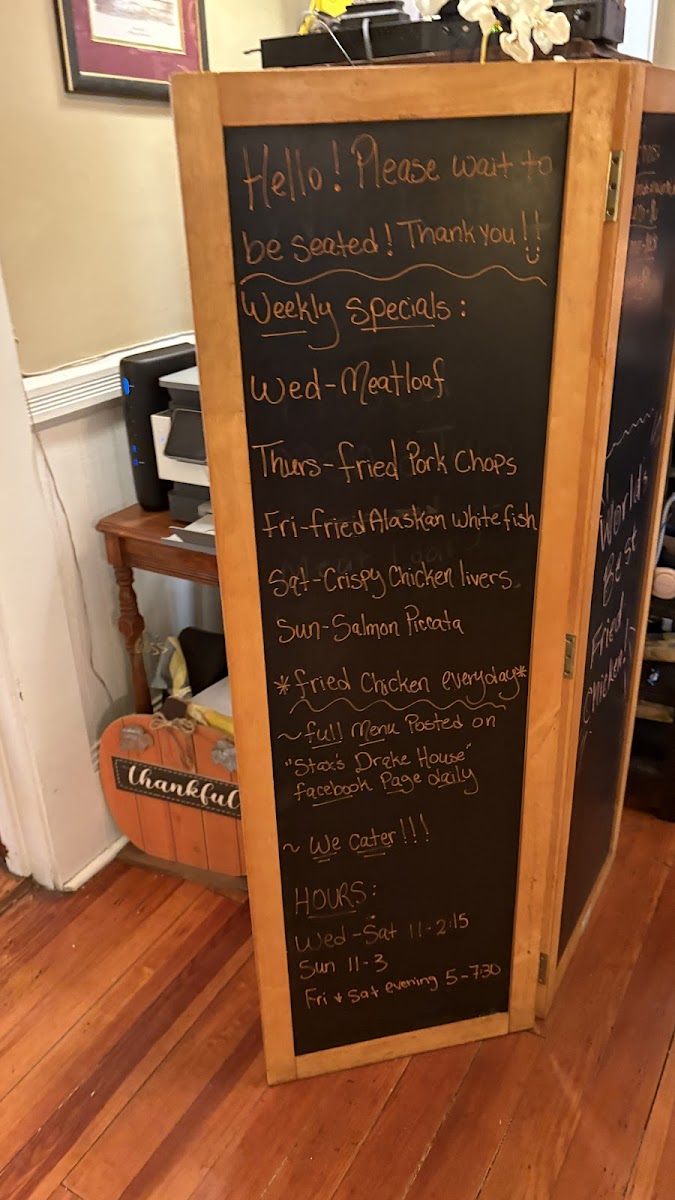 Hello! Please wait to
be seated! Thank you!!
Weekly Specials:
Wed-Meatloaf
Thurs-fried Pork Chops
Fri-fried Alaskan white fish
Sat-Crispy Chicken livers
Sun-Salmon Piccata
*fried Chicken everyday*
~full Menu Posted on
"Stax's Drake House"
facebook Page daily
~ We Cater!!!
HOURS:
Wed-Sat 11-2:15
Sun 11-3
Fri & Sat evening 5-7:30
thankful
World's
Best
Fried
Chicken!